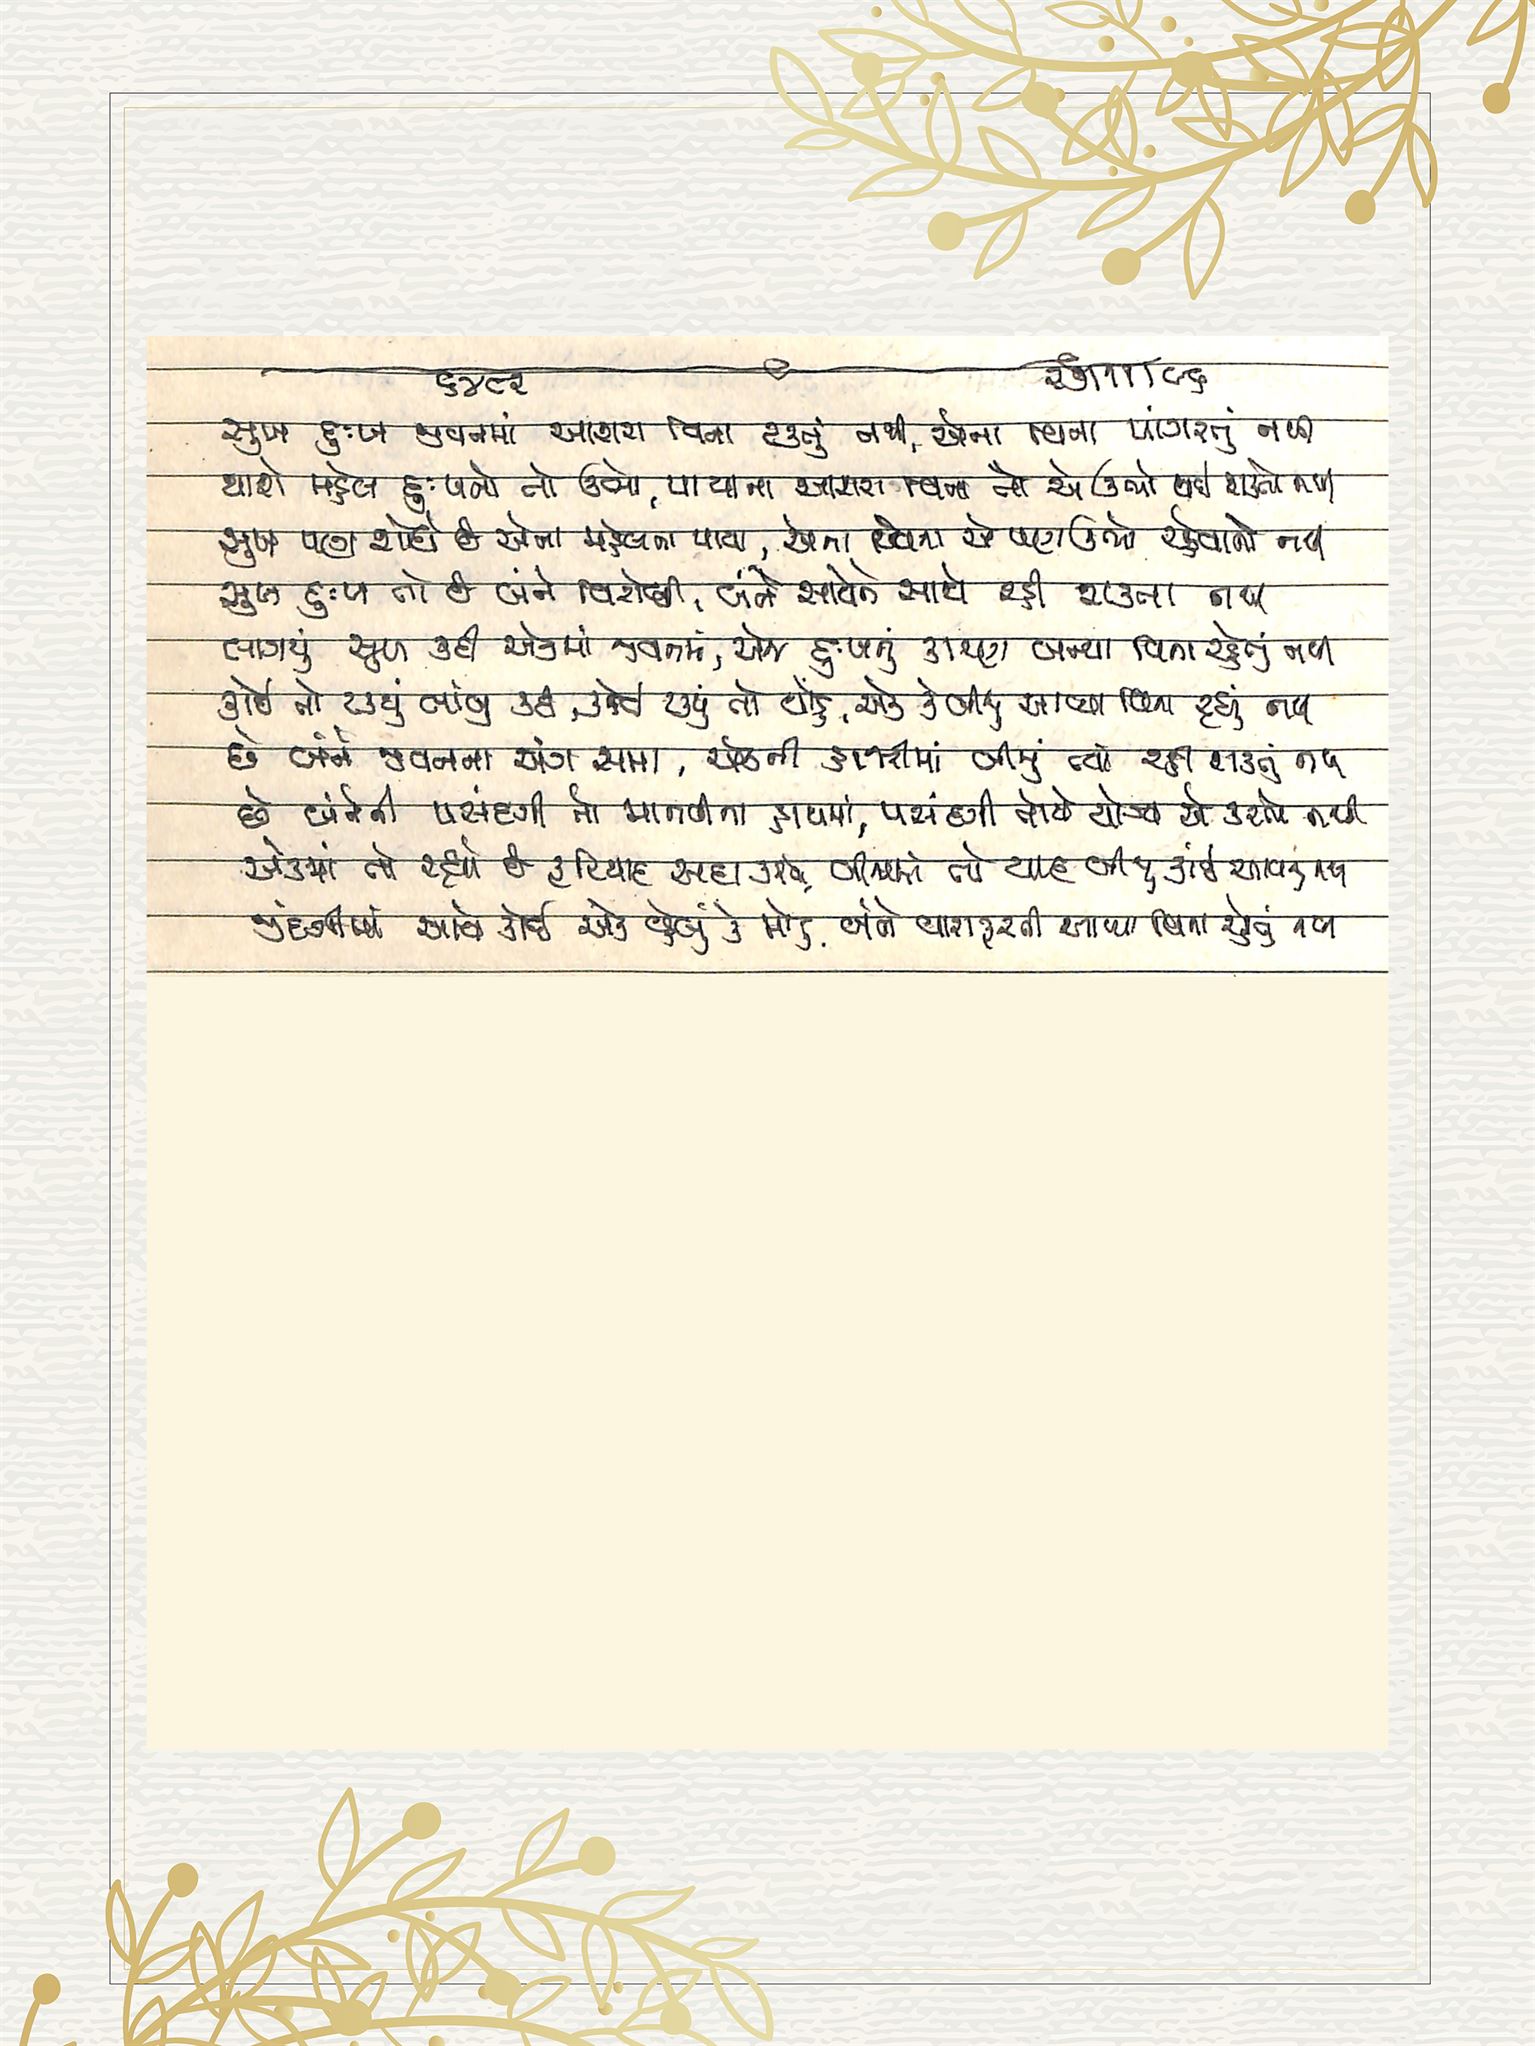 ૬૪૯૨
સુખ દુઃખ જીવનમાં આશરા વિના ટકતું નથી, એના વિના પાંગરતું નથી
થાશે મહેલ દુઃખનો તો ઉભો, પાયાના આશરા વિના તો એ ઉભો થઈ શકતો નથી
સુખ પણ શોધે છે એના મહેલના પાયા, એના વિના એ પણ ઉભો રહેવાનો નથી
સુખ દુઃખ તો છે બંને વિરોધી, બંને સાથેને સાથે રહી શકતા નથી
લાગ્યું સુખ કદી એકમાં જીવનમાં, એજ દુઃખનું કારણ બન્યા વિના રહેતું નથી
કોઈ તો ટક્યું લાંબુ કદી, કોઈ ટક્યું તો થોડું, એક કે બીજું આવ્યા વિના રહ્યું નથી
છે બંને જીવનના અંગ સમા, એકની હાજરીમાં બીજું ત્યાં રહી શકતું નથી
છે બંનેની પસંદગી તો માનવીના હાથમાં, પસંદગી તોયે યોગ્ય એ કરતો નથી
એકમાં તો રહ્યો છે ફરિયાદ સદા કરતો, બીજામાં તો યાદ બીજું કાંઈ આવતું નથી
જીંદગીમાં આવે કોઈ એક વહેલું કે મોડું, બંને વારાફરતી આવ્યા વિના રહેતું નથી